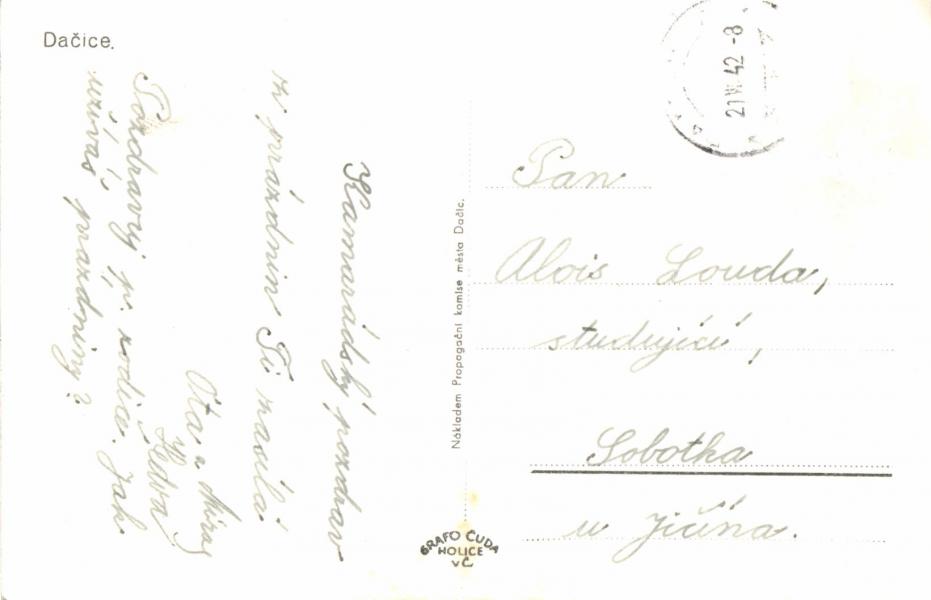 Dačice.
Kamarádský pozdrav
z prázdnin Ti zasílá
Ota a
Pozdravuj p. rodiče. Jak
užíváš prázdniny?
21 VII 42 -8
Pan
Alois Louda,
studující,
Sobotka
u Jičína.
Nákladem Propagační komise města Dačic.
GRAFO ČUDA
HOLICE
VČ.